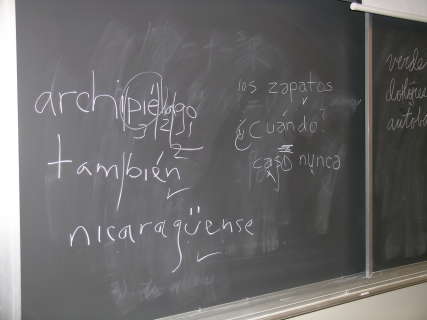 archipiélago
también
nicaragüense
los zapatos
¿Cuándo?
casi nunca
verde
autob